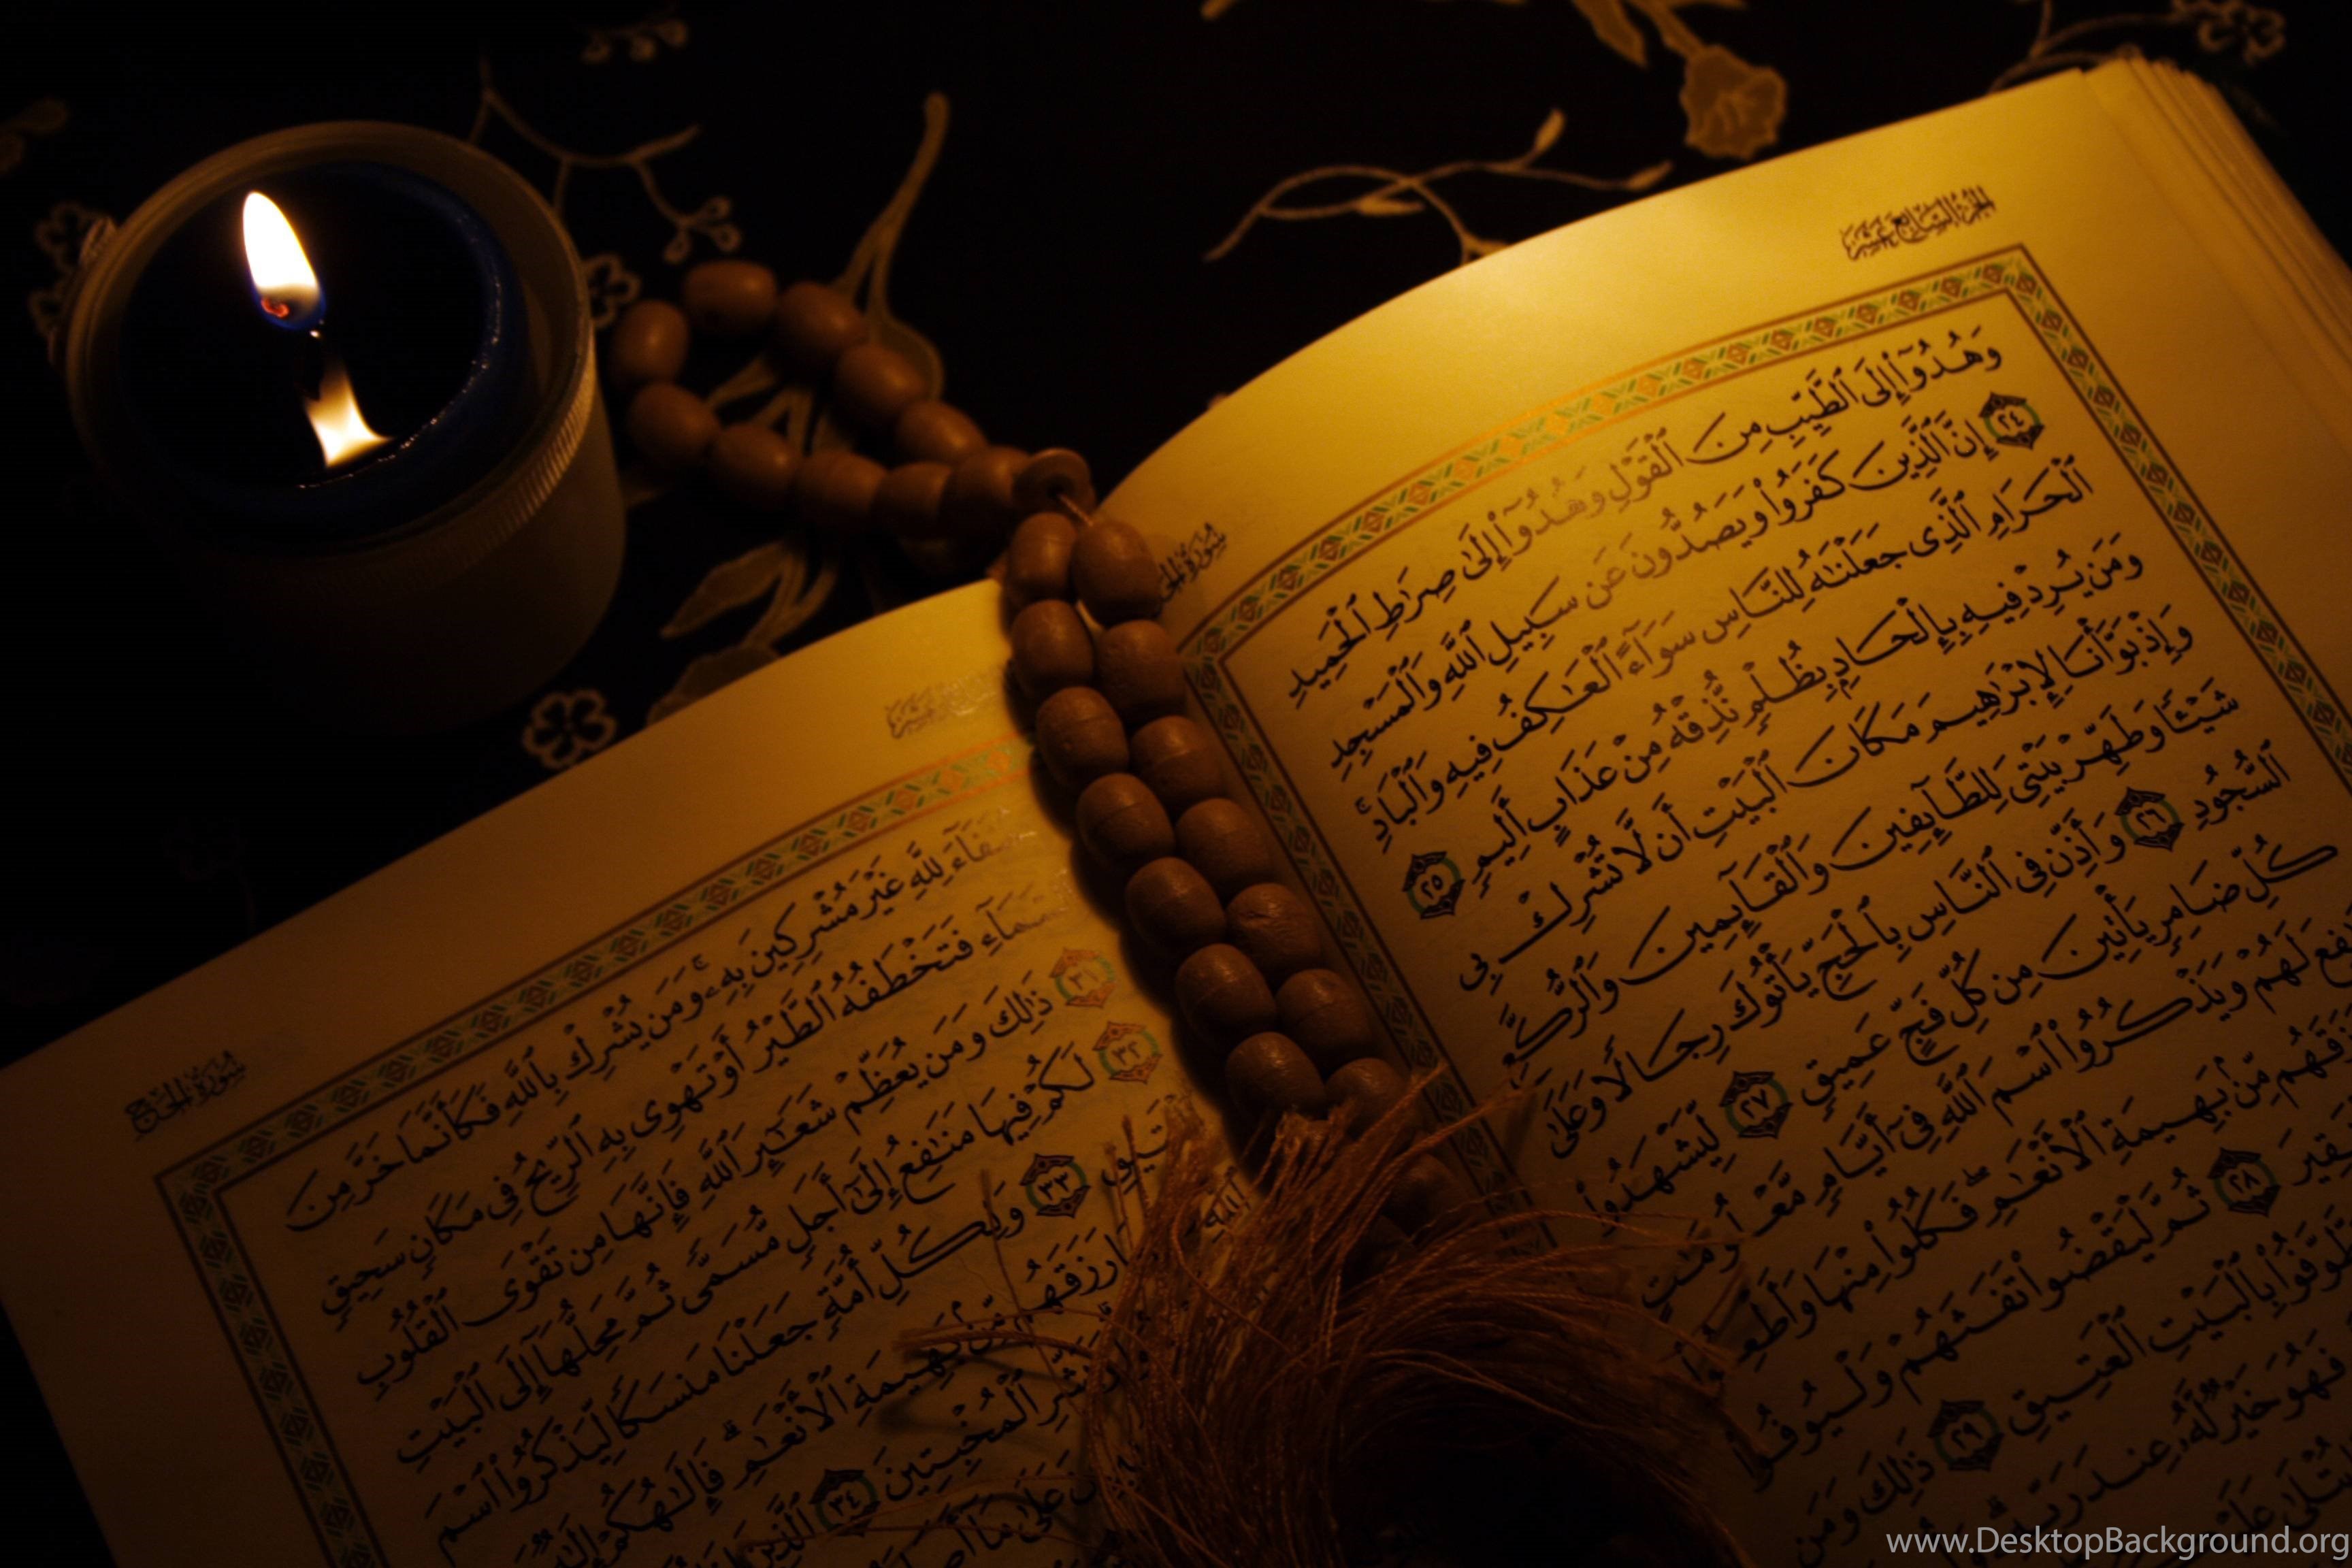 الجزء السابع عشر
وَهُدُوٓا۟ إِلَى ٱلطَّيِّبِ مِنَ ٱلْقَوْلِ وَهُدُوٓا۟ إِلَىٰ صِرَٰطِ ٱلْحَمِيدِ
٢٤ إِنَّ ٱلَّذِينَ كَفَرُوا۟ وَيَصُدُّونَ عَن سَبِيلِ ٱللَّهِ وَٱلْمَسْجِدِ
ٱلْحَرَامِ ٱلَّذِى جَعَلْنَٰهُ لِلنَّاسِ سَوَآءً ٱلْعَٰكِفُ فِيهِ وَٱلْبَادِ ۚ
وَمَن يُرِدْ فِيهِ بِإِلْحَادٍۭ بِظُلْمٍ نُّذِقْهُ مِنْ عَذَابٍ أَلِيمٍ ٢٥
وَإِذْ بَوَّأْنَا لِإِبْرَٰهِيمَ مَكَانَ ٱلْبَيْتِ أَن لَّا تُشْرِكْ بِى
شَيْـًٔا وَطَهِّرْ بَيْتِىَ لِلطَّآئِفِينَ وَٱلْقَآئِمِينَ وَٱلرُّكَّعِ
ٱلسُّجُودِ ٢٦ وَأَذِّن فِى ٱلنَّاسِ بِٱلْحَجِّ يَأْتُوكَ رِجَالًا وَعَلَىٰ
كُلِّ ضَامِرٍ يَأْتِينَ مِن كُلِّ فَجٍّ عَمِيقٍ ٢٧ لِّيَشْهَدُوا۟
لَهُمْ وَيَذْكُرُوا۟ ٱسْمَ ٱللَّهِ فِىٓ أَيَّامٍ مَّعْلُومَٰتٍ
مِّنۢ بَهِيمَةِ ٱلْأَنْعَٰمِ ۖ فَكُلُوا۟ مِنْهَا وَأَطْعِمُوا۟
٢٨ ثُمَّ لْيَقْضُوا۟ تَفَثَهُمْ وَلْيُوفُوا۟
بِٱلْبَيْتِ ٱلْعَتِيقِ ٢٩ ذَٰلِكَ وَمَن
فَهُوَ خَيْرٌ لَّهُۥ عِندَ رَبِّهِۦ ۗ
سورة الحج
لِلَّهِ غَيْرَ مُشْرِكِينَ بِهِۦ ۚ وَمَن يُشْرِكْ بِٱللَّهِ فَكَأَنَّمَا خَرَّ مِنَ
ٱلسَّمَآءِ فَتَخْطَفُهُ ٱلطَّيْرُ أَوْ تَهْوِى بِهِ ٱلرِّيحُ فِى مَكَانٍ سَحِيقٍ
٣١ ذَٰلِكَ وَمَن يُعَظِّمْ شَعَٰٓئِرَ ٱللَّهِ فَإِنَّهَا مِن تَقْوَى ٱلْقُلُوبِ
٣٢ لَكُمْ فِيهَا مَنَٰفِعُ إِلَىٰٓ أَجَلٍ مُّسَمًّى ثُمَّ مَحِلُّهَآ إِلَى ٱلْبَيْتِ
٣٣ وَلِكُلِّ أُمَّةٍ جَعَلْنَا مَنسَكًا لِّيَذْكُرُوا۟ ٱسْمَ
رَزَقَهُم مِّنۢ بَهِيمَةِ ٱلْأَنْعَٰمِ ۗ فَإِلَٰهُكُمْ إِلَٰهٌ
ٱلْمُخْبِتِينَ ٣٤ ٱلَّذِينَ
عَلَىٰ مَآ
www.DesktopBackground.org